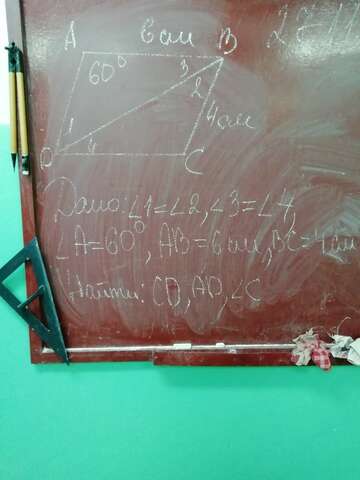 A 6 см B
60° 3
2
4 см
1
D 4 C
Дано: ∠1=∠2, ∠3=∠4,
∠A=60°, AB=6 см, BC=4 см
Найти: CD, AD, ∠C